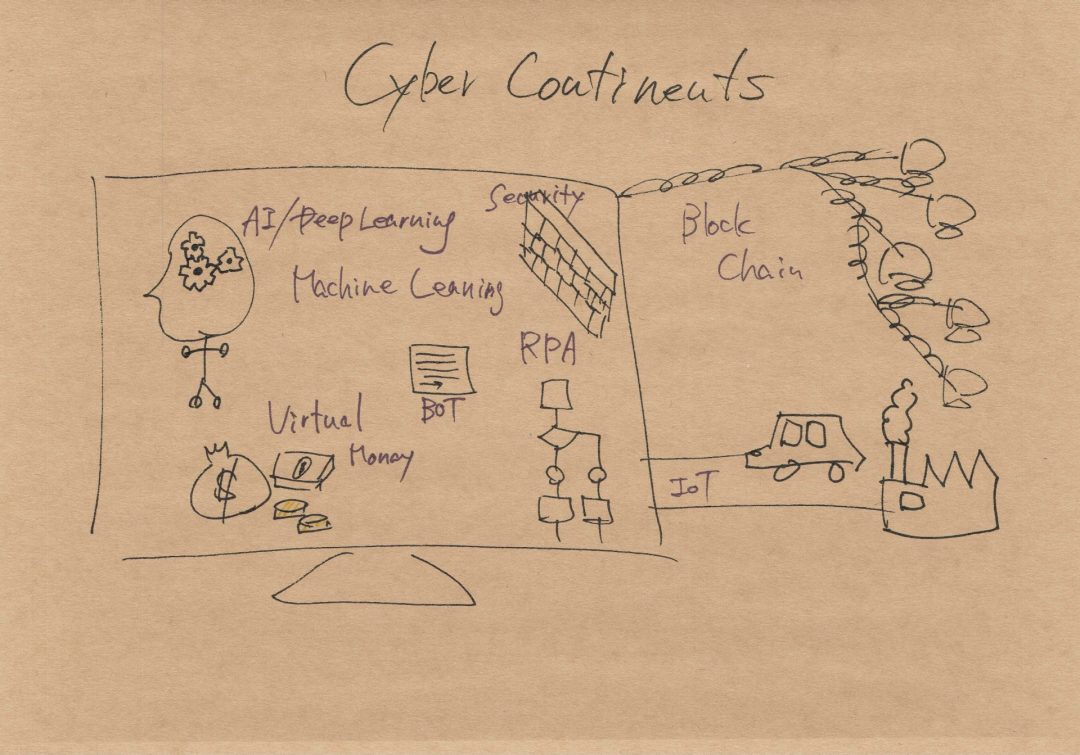 Cyber Continents
Security
AI/Deep Learning
Machine Leaning
Block
Chain
RPA
BOT
Virtual
Money
$
IoT